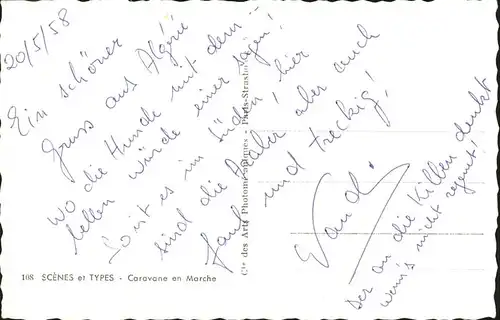 20/5/58
Ein schöner
Gruss aus Algérie
wo die Hunde mit dem
bellen würde einer sagen!
So ist es im Süden! hier
sind die Araber aber auch
faul und dreckig!
Der an die Killen denkt
wenn's nicht regnet!
108 SCÈNES et TYPES - Caravane en Marche
Cie des Arts Photomécaniques - Paris-Strasbourg